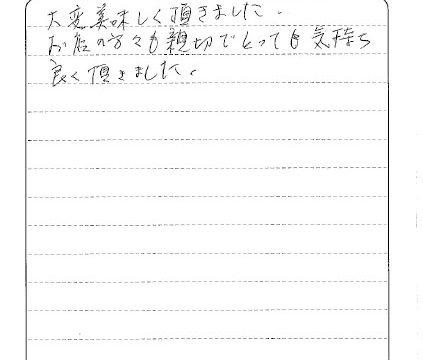 大変美味しく頂きました.
お店の方々も親切でとっても気持ち
良く頂きました.